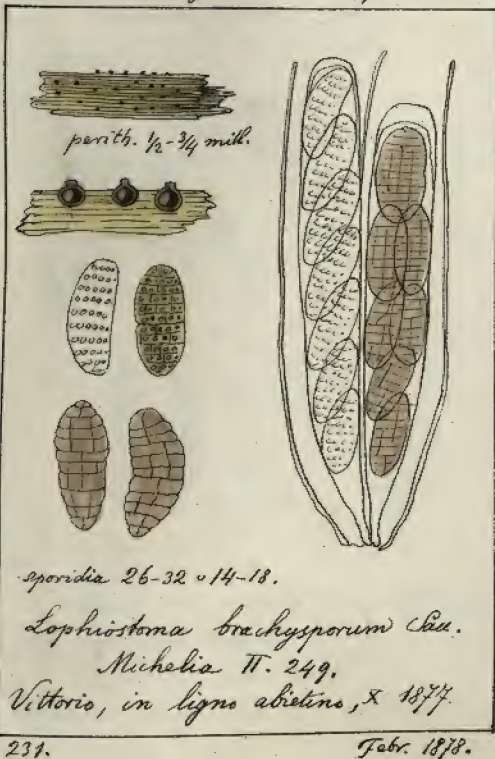 perith. ½-¾ mill.
sporidia 26-32 ᴗ 14-18.
Lophiostoma brachysporum Sacc.
Michelia II. 249.
Vittorio, in ligno abietino, X 1877.
231. Febr. 1878.